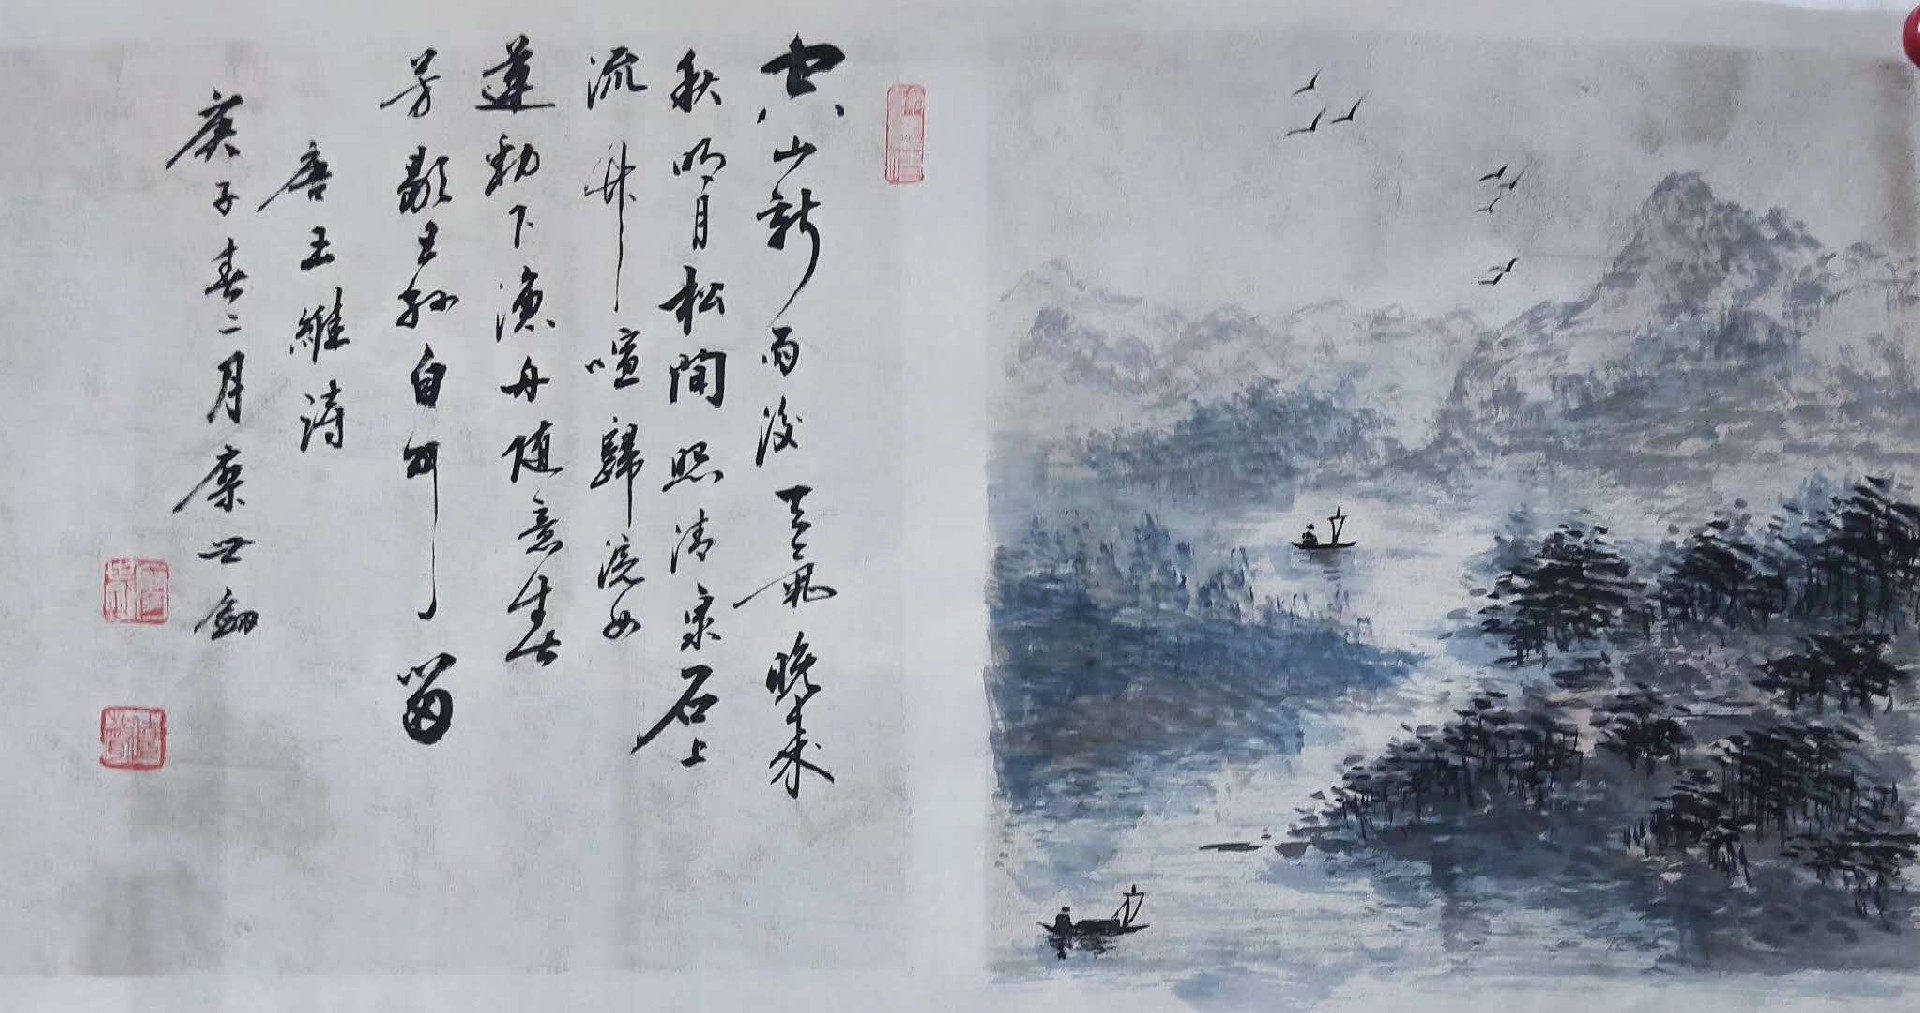 空山新雨後天氣晚来
秋明月松間照清泉石上
流竹喧歸浣女
蓮動下漁舟随意春
芳歇王孫自可留
唐王維詩
庚子春二月世